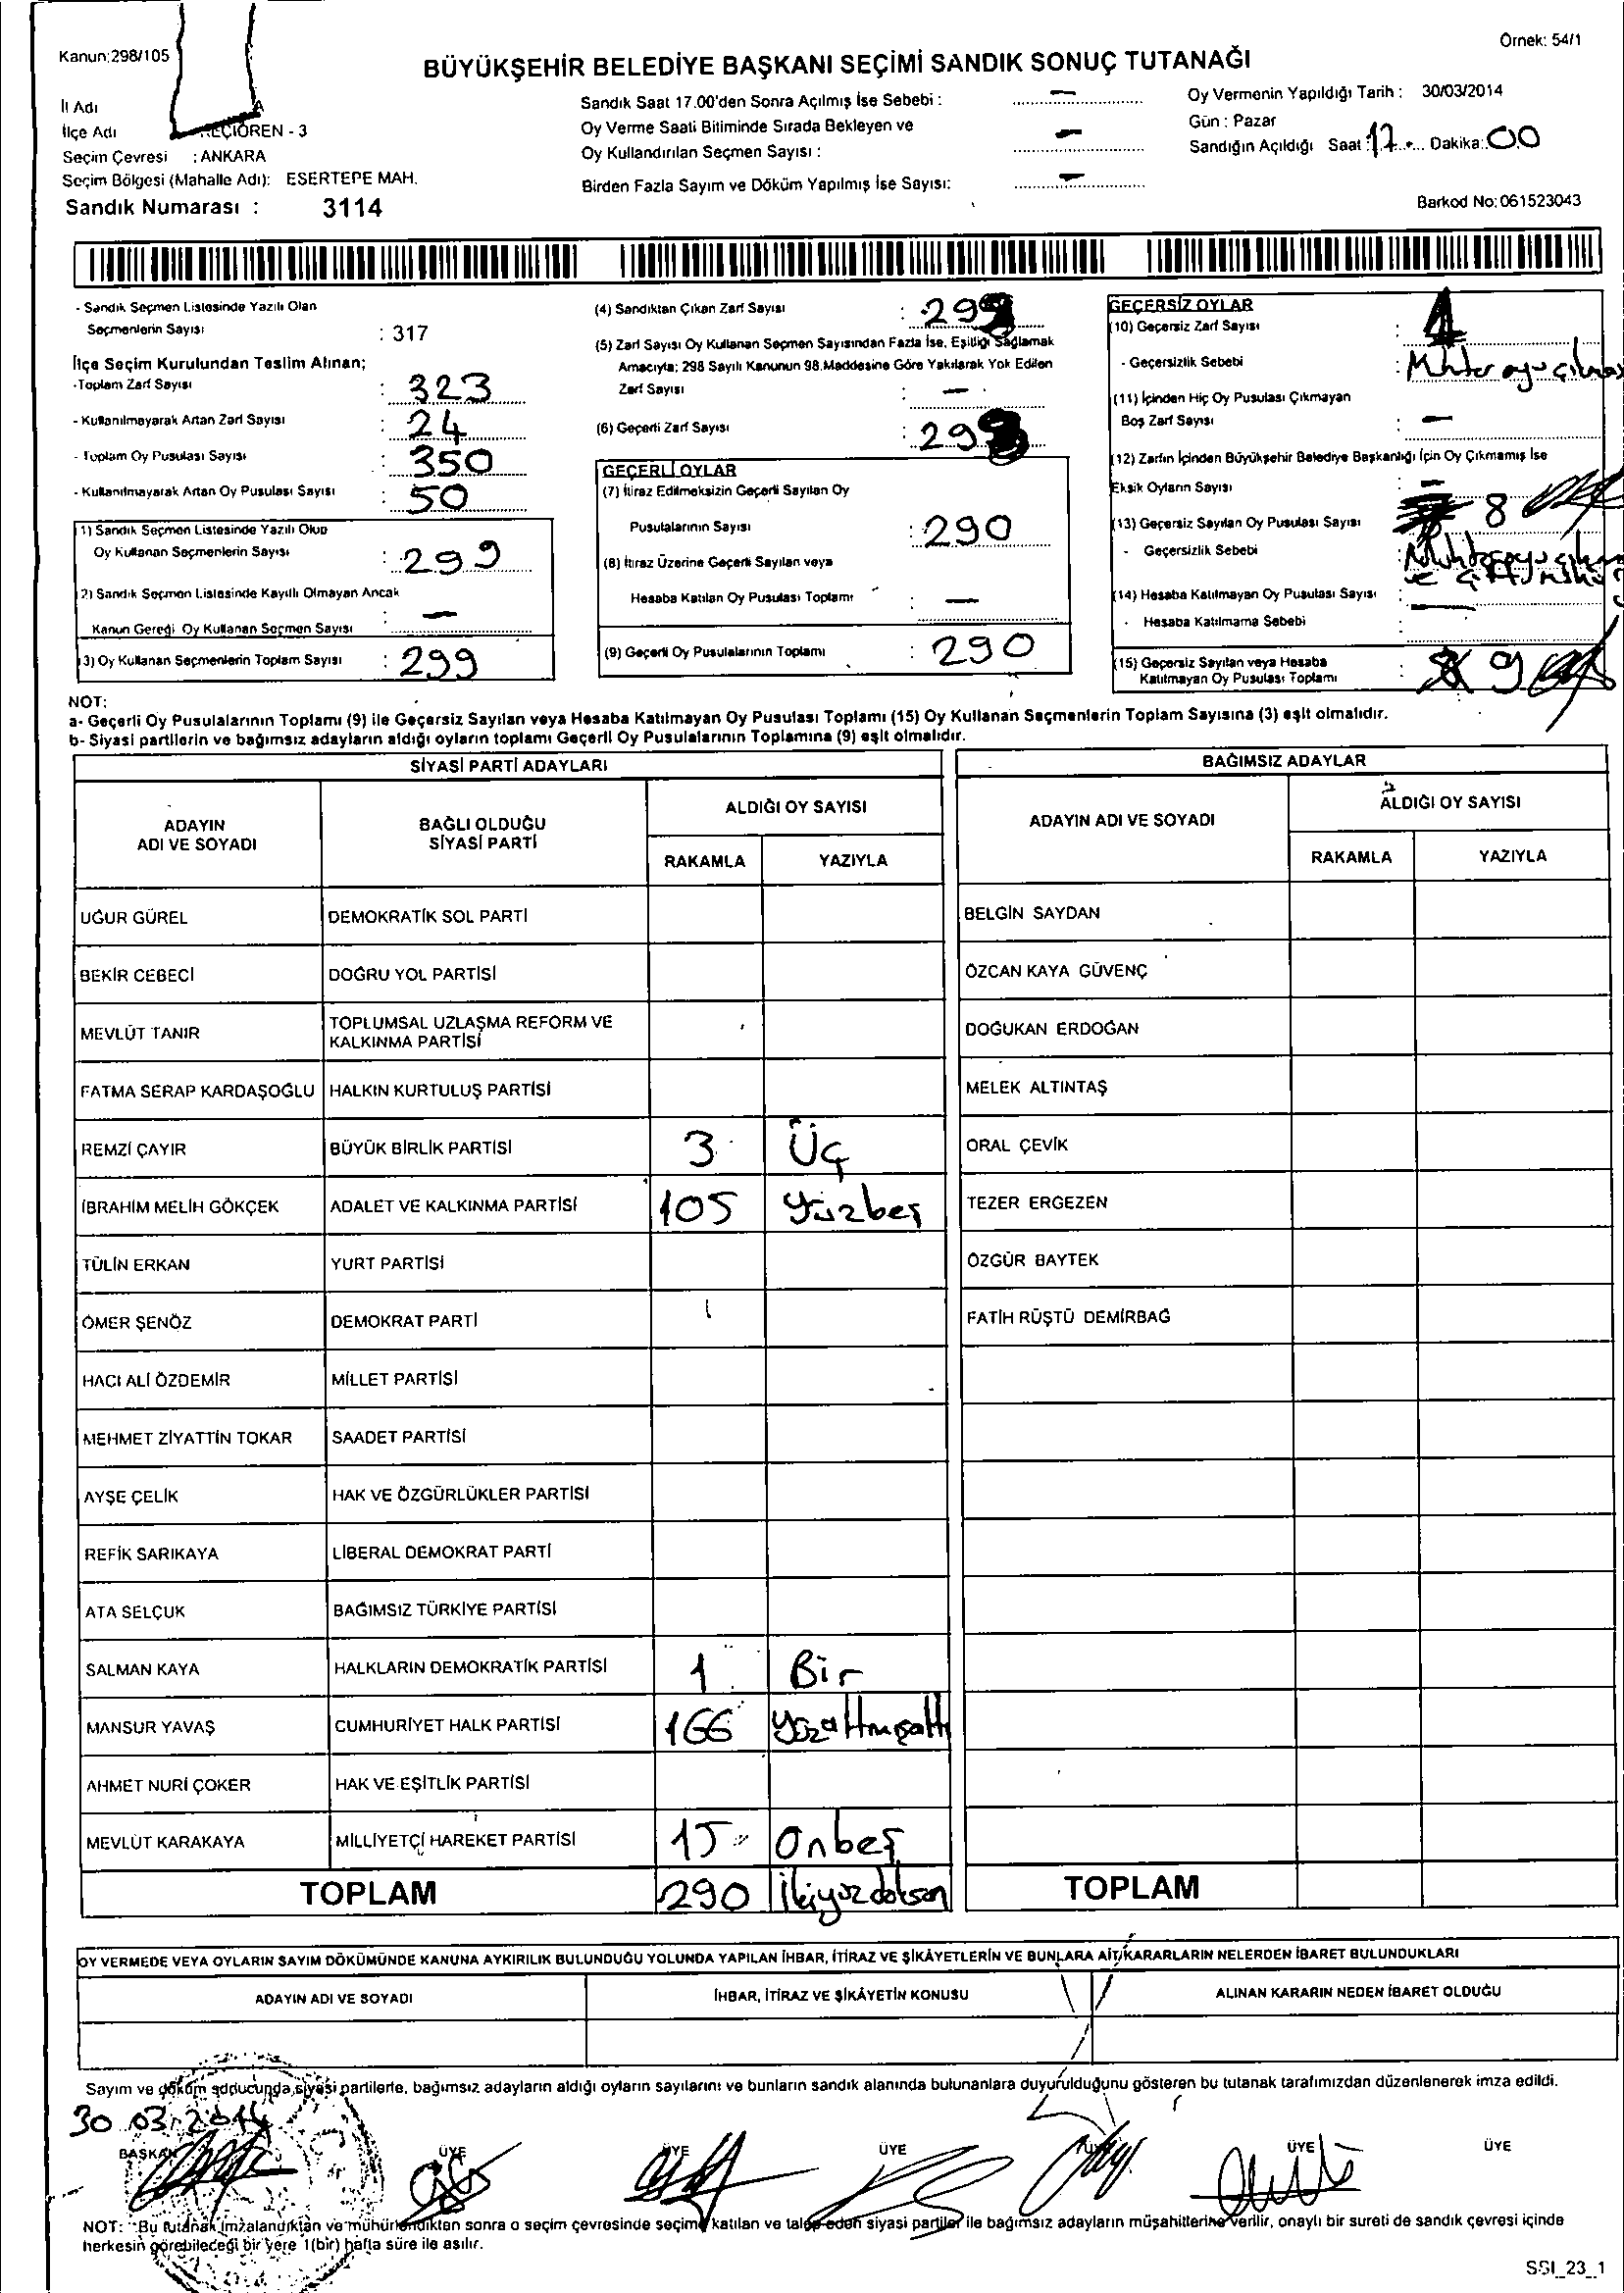 Kanun:298/105
Örnek: 54/1
BÜYÜKŞEHİR BELEDİYE BAŞKANI SEÇİMİ SANDIK SONUÇ TUTANAĞI
İl Adı
A
İlçe Adı KEÇİÖREN - 3
Seçim Çevresi : ANKARA
Seçim Bölgesi (Mahalle Adı): ESERTEPE MAH.
Sandık Numarası : 3114
Sandık Saat 17.00'den Sonra Açılmış İse Sebebi : –
Oy Verme Saati Bitiminde Sırada Bekleyen ve
Oy Kullandırılan Seçmen Sayısı : –
Birden Fazla Sayım ve Döküm Yapılmış İse Sayısı: –
Oy Vermenin Yapıldığı Tarih : 30/03/2014
Gün : Pazar
Sandığın Açıldığı Saat : 17 Dakika: 00
Barkod No: 061523043
- Sandık Seçmen Listesinde Yazılı Olan
Seçmenlerin Sayısı : 317
İlçe Seçim Kurulundan Teslim Alınan;
-Toplam Zarf Sayısı : 323
- Kullanılmayarak Artan Zarf Sayısı : 24
- Toplam Oy Pusulası Sayısı : 350
- Kullanılmayarak Artan Oy Pusulası Sayısı : 50
1) Sandık Seçmen Listesinde Yazılı Olup
Oy Kullanan Seçmenlerin Sayısı : 299
2) Sandık Seçmen Listesinde Kayıtlı Olmayan Ancak
Kanun Gereği Oy Kullanan Seçmen Sayısı : –
3) Oy Kullanan Seçmenlerin Toplam Sayısı : 299
(4) Sandıktan Çıkan Zarf Sayısı : 299
(5) Zarf Sayısı Oy Kullanan Seçmen Sayısından Fazla İse, Eşitliği Sağlamak
Amacıyla; 298 Sayılı Kanunun 98.Maddesine Göre Yakılarak Yok Edilen
Zarf Sayısı : –
(6) Geçerli Zarf Sayısı
GEÇERLİ OYLAR
(7) İtiraz Edilmeksizin Geçerli Sayılan Oy
Pusulalarının Sayısı : 290
(8) İtiraz Üzerine Geçerli Sayılan veya
Hesaba Katılan Oy Pusulası Toplamı : –
(9) Geçerli Oy Pusulalarının Toplamı : 290
GEÇERSİZ OYLAR
(10) Geçersiz Zarf Sayısı : 1
- Geçersizlik Sebebi : Muhtar oyu çıkması
(11) İçinden Hiç Oy Pusulası Çıkmayan
Boş Zarf Sayısı : –
(12) Zarfın İçinden Büyükşehir Belediye Başkanlığı İçin Oy Çıkmamış İse
Eksik Oyların Sayısı : –
(13) Geçersiz Sayılan Oy Pusulası Sayısı : 8
- Geçersizlik Sebebi :
(14) Hesaba Katılmayan Oy Pusulası Sayısı : –
- Hesaba Katılmama Sebebi :
(15) Geçersiz Sayılan veya Hesaba
Katılmayan Oy Pusulası Toplamı : 9
NOT:
a- Geçerli Oy Pusulalarının Toplamı (9) ile Geçersiz Sayılan veya Hesaba Katılmayan Oy Pusulası Toplamı (15) Oy Kullanan Seçmenlerin Toplam Sayısına (3) eşit olmalıdır.
b- Siyasi partilerin ve bağımsız adayların aldığı oyların toplamı Geçerli Oy Pusulalarının Toplamına (9) eşit olmalıdır.
SİYASİ PARTİ ADAYLARI
ADAYIN
ADI VE SOYADI
BAĞLI OLDUĞU
SİYASİ PARTİ
ALDIĞI OY SAYISI
RAKAMLA YAZIYLA
UĞUR GÜREL DEMOKRATİK SOL PARTİ
BEKİR CEBECİ DOĞRU YOL PARTİSİ
MEVLÜT TANIR TOPLUMSAL UZLAŞMA REFORM VE
KALKINMA PARTİSİ
FATMA SERAP KARDAŞOĞLU HALKIN KURTULUŞ PARTİSİ
REMZİ ÇAYIR BÜYÜK BİRLİK PARTİSİ 3 Üç
İBRAHİM MELİH GÖKÇEK ADALET VE KALKINMA PARTİSİ 105 Yüzbeş
TÜLİN ERKAN YURT PARTİSİ
ÖMER ŞENÖZ DEMOKRAT PARTİ
HACI ALİ ÖZDEMİR MİLLET PARTİSİ
MEHMET ZİYATTİN TOKAR SAADET PARTİSİ
AYŞE ÇELİK HAK VE ÖZGÜRLÜKLER PARTİSİ
REFİK SARIKAYA LİBERAL DEMOKRAT PARTİ
ATA SELÇUK BAĞIMSIZ TÜRKİYE PARTİSİ
SALMAN KAYA HALKLARIN DEMOKRATİK PARTİSİ 1 Bir
MANSUR YAVAŞ CUMHURİYET HALK PARTİSİ 166 yüzaltmışaltı
AHMET NURİ ÇOKER HAK VE EŞİTLİK PARTİSİ
MEVLÜT KARAKAYA MİLLİYETÇİ HAREKET PARTİSİ 15 Onbeş
TOPLAM 290 İkiyüzdoksan
BAĞIMSIZ ADAYLAR
ADAYIN ADI VE SOYADI
ALDIĞI OY SAYISI
RAKAMLA YAZIYLA
BELGİN SAYDAN
ÖZCAN KAYA GÜVENÇ
DOĞUKAN ERDOĞAN
MELEK ALTINTAŞ
ORAL ÇEVİK
TEZER ERGEZEN
ÖZGÜR BAYTEK
FATİH RÜŞTÜ DEMİRBAĞ
TOPLAM
OY VERMEDE VEYA OYLARIN SAYIM DÖKÜMÜNDE KANUNA AYKIRILIK BULUNDUĞU YOLUNDA YAPILAN İHBAR, İTİRAZ VE ŞİKÂYETLERİN VE BUNLARA AİT KARARLARIN NELERDEN İBARET BULUNDUKLARI
ADAYIN ADI VE SOYADI İHBAR, İTİRAZ VE ŞİKÂYETİN KONUSU ALINAN KARARIN NEDEN İBARET OLDUĞU
Sayım ve döküm sonucunda,siyasi partilerle, bağımsız adayların aldığı oyların sayılarını ve bunların sandık alanında bulunanlara duyurulduğunu gösteren bu tutanak tarafımızdan düzenlenerek imza edildi.
30.03.2014
BAŞKAN ÜYE ÜYE ÜYE ÜYE ÜYE ÜYE
NOT: Bu tutanak imzalandıktan ve mühürlendikten sonra o seçim çevresinde seçime katılan ve talep eden siyasi partiler ile bağımsız adayların müşahitlerine verilir, onaylı bir sureti de sandık çevresi içinde
herkesin görebileceği bir yere 1(bir) hafta süre ile asılır.
SSI_23_1